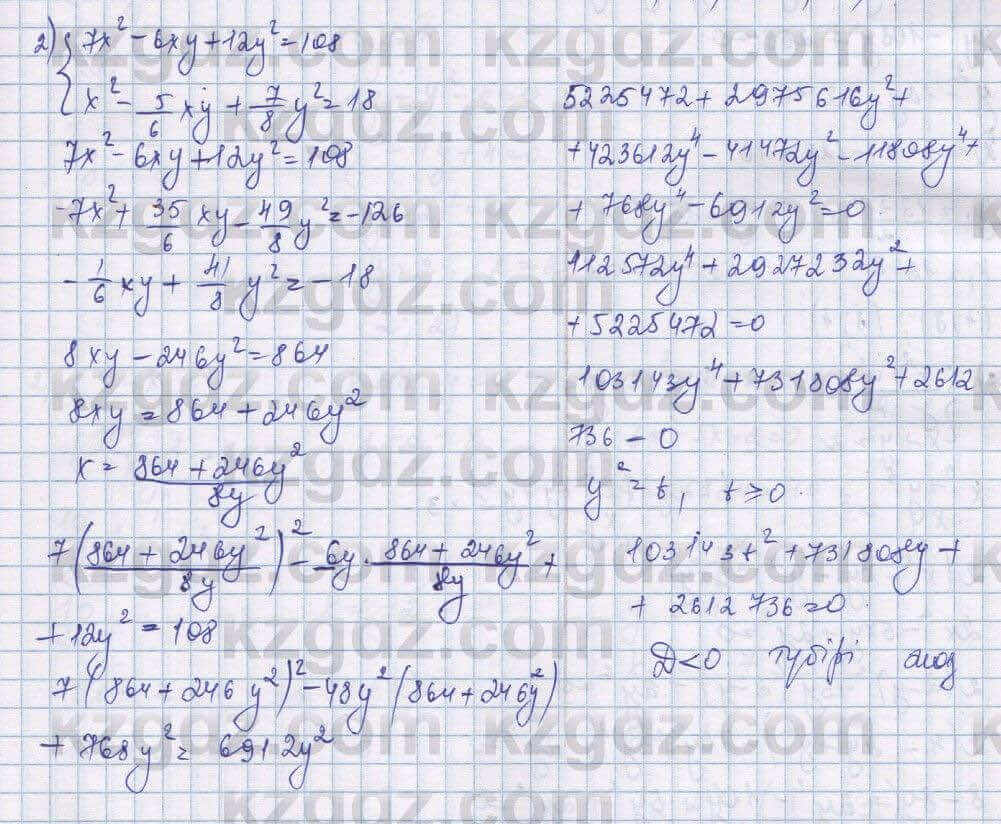 2) { 7x² - 6xy + 12y² = 108
x² - 5/6 xy + 7/8 y² = 18
7x² - 6xy + 12y² = 108
-7x² + 35/6 xy - 49/8 y² = -126
-1/6 xy + 41/8 y² = -18
8xy - 246y² = 864
8xy = 864 + 246y²
x = (864 + 246y²)/8y
7((864 + 246y²)/8y)² - 6y · (864 + 246y²)/8y +
+ 12y² = 108
7(864 + 246y²)² - 48y²(864 + 246y²)
+ 768y² = 6912y²
5225472 + 2975616y² +
+ 423612y⁴ - 41472y² - 11808y⁴ +
+ 768y⁴ - 6912y² = 0
112572y⁴ + 2927232y² +
+ 5225472 = 0
103143y⁴ + 731808y² + 2612
736 = 0
y² = t, t ≥ 0.
103143t² + 731808y +
+ 2612736 = 0.
D < 0 түбірі жоқ
kzgdz.com